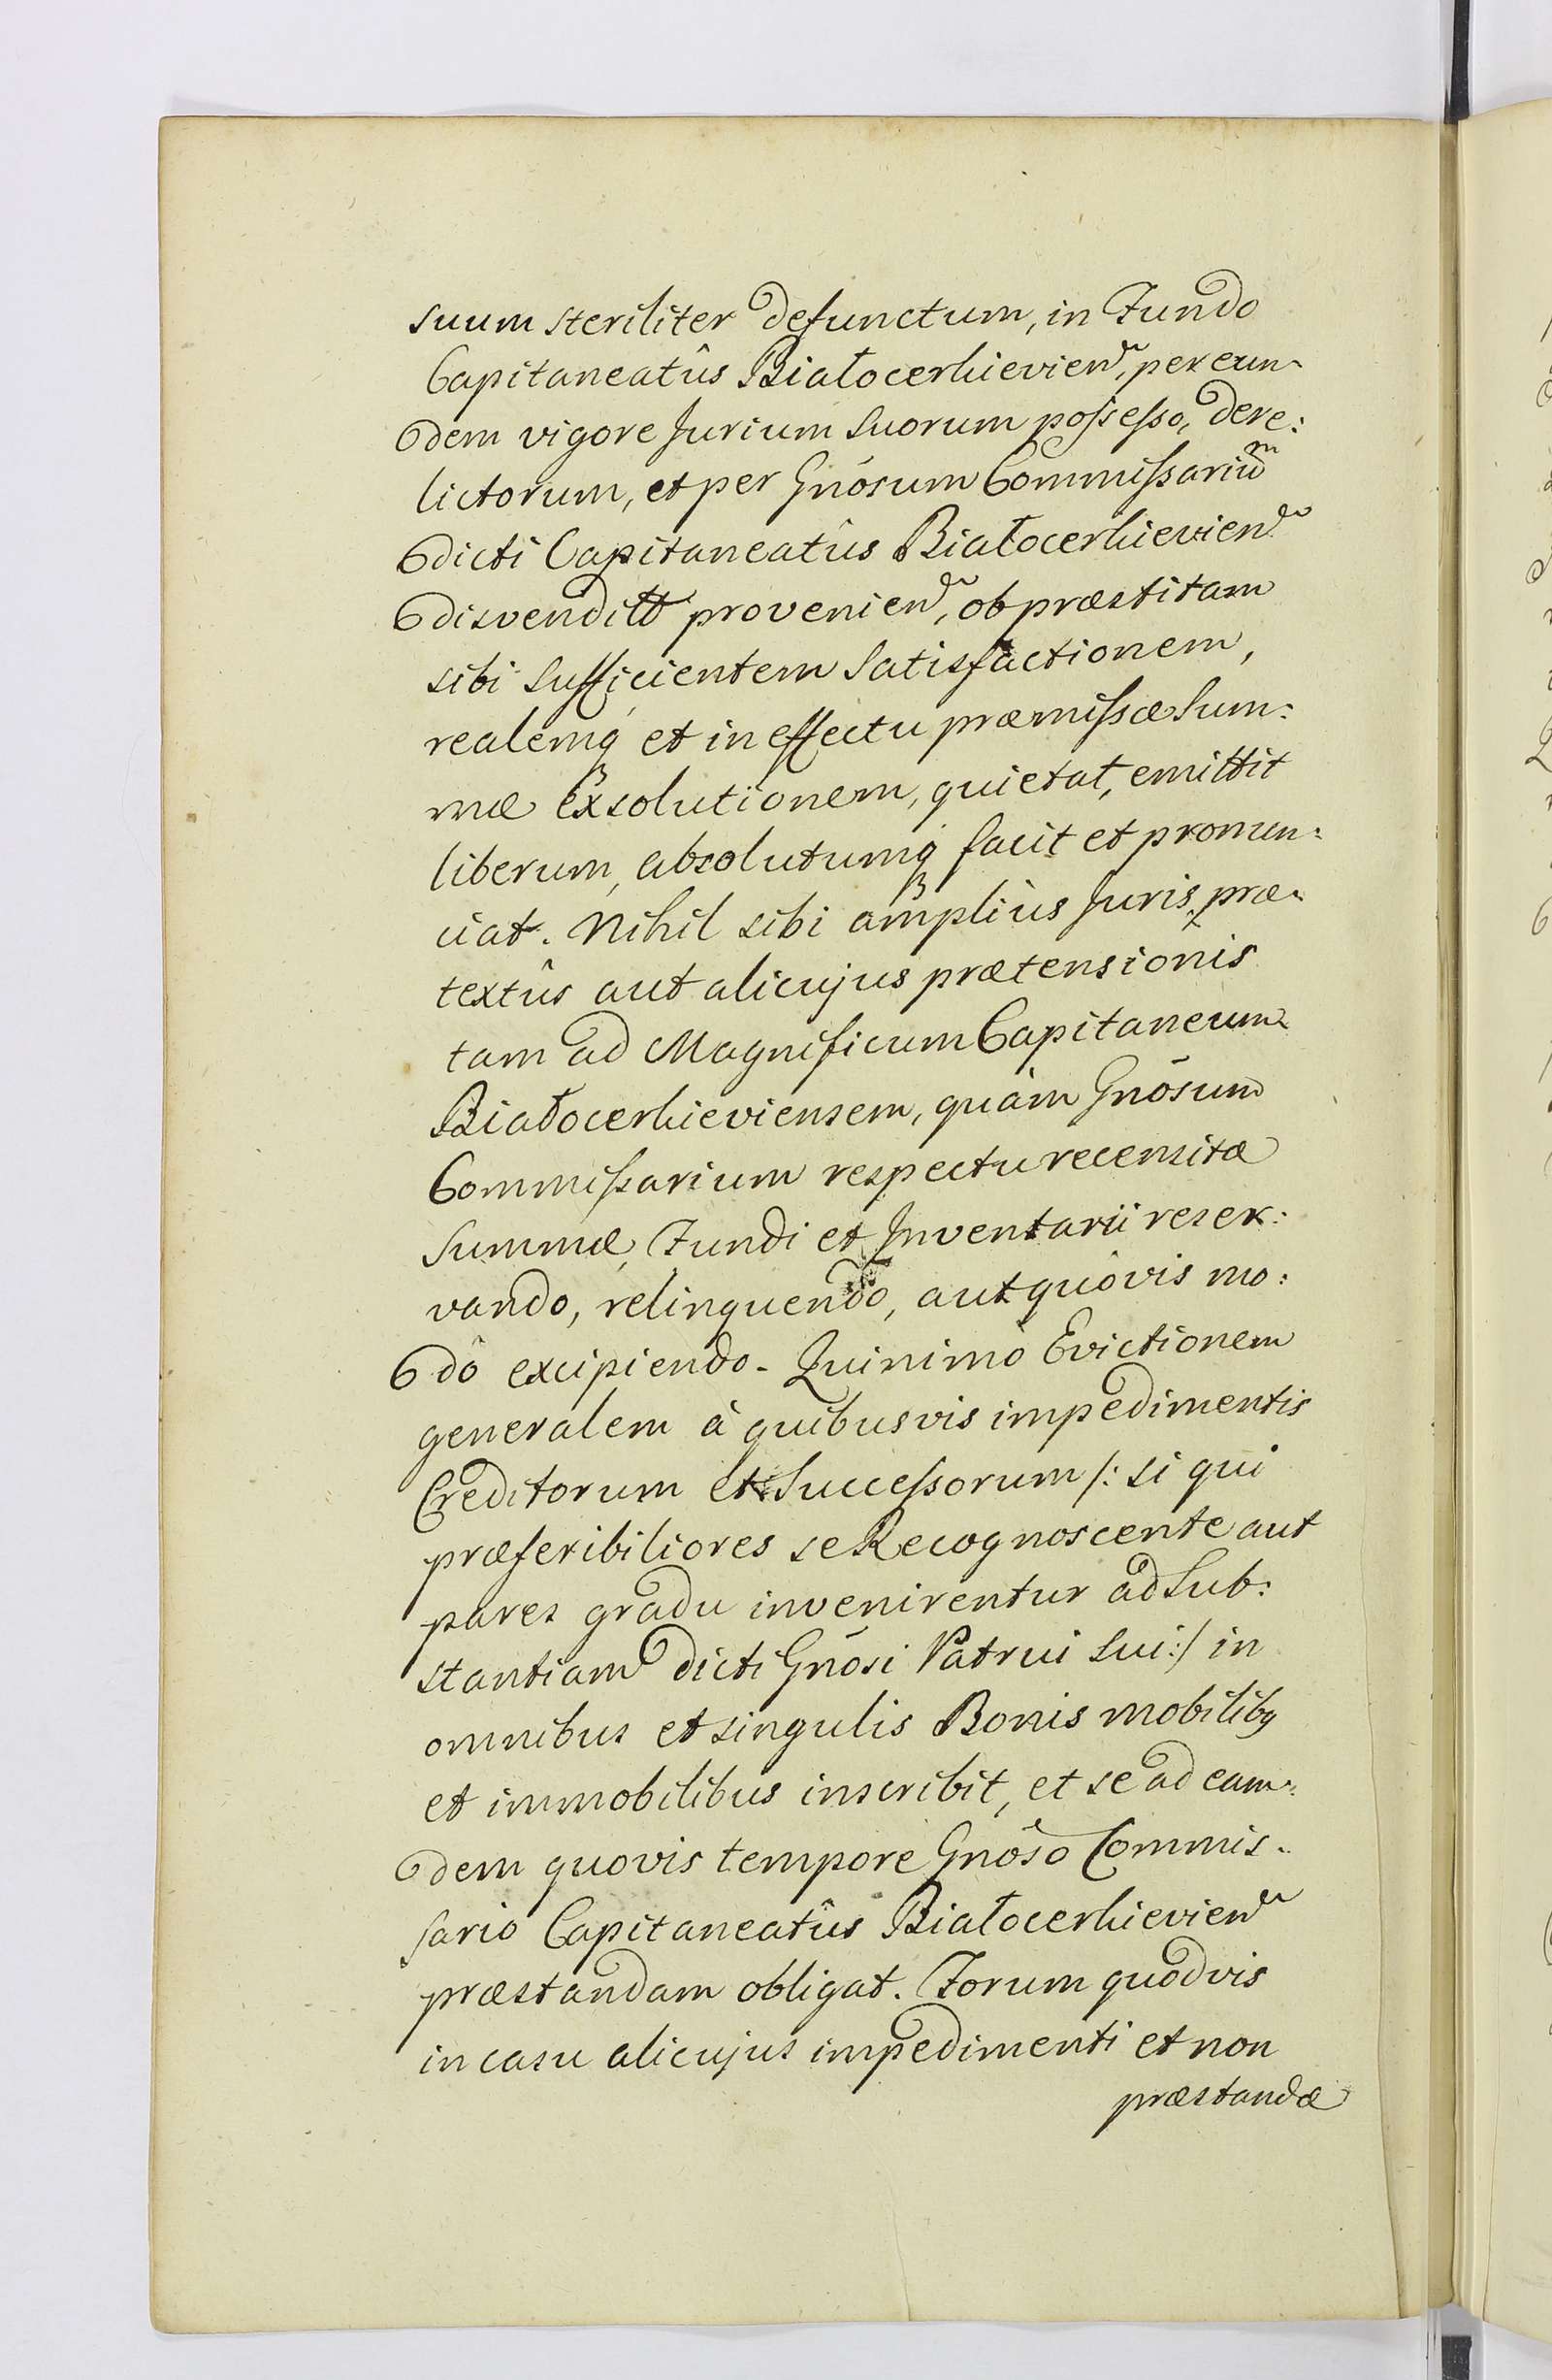 suum steriliter defunctum, in Fundo
Capitaneatûs Białocerkievien, per eun-
dem vigore Jurium suorum possesso, dere:
lictorum, et per Gnosum Commissariũ
dicti Capitaneatûs Białocerkievien
disvendit provenien, ob præstitam
sibi sufficientem satisfactionem,
realemq et in effectu præmissæ sum:
mæ exsolutionem, quietat, emittit
liberum, absolutumq facit et pronun:
ciat. Nihil sibi amplius Juris, præ-
textûs aut alicujus prætensionis
tam ad Magnificum Capitaneum
Białocerkieviensem, quàm Gnosum
Commissarium respectu recensitæ
summæ, Fundi et Inventarii reser:
vando, relinquendo, aut quovis mo:
dô excipiendo. Quinimo Evictionem
generalem à quibusvis impedimentis
Creditorum et Successorum /: si qui
præferibiliores se Recognoscente aut
pares gradu invenirentur ad Sub:
stantiam dicti Gnosi Patrui sui :/ in
omnibus et singulis Bonis mobilibq
et immobilibus inscribit, et se ad eam-
dem quovis tempore Gnoso Commis-
sario Capitaneatûs Białocerkievien
præstandam obligat. Forum quodvis
in casu alicujus impedimenti et non
præstandæ